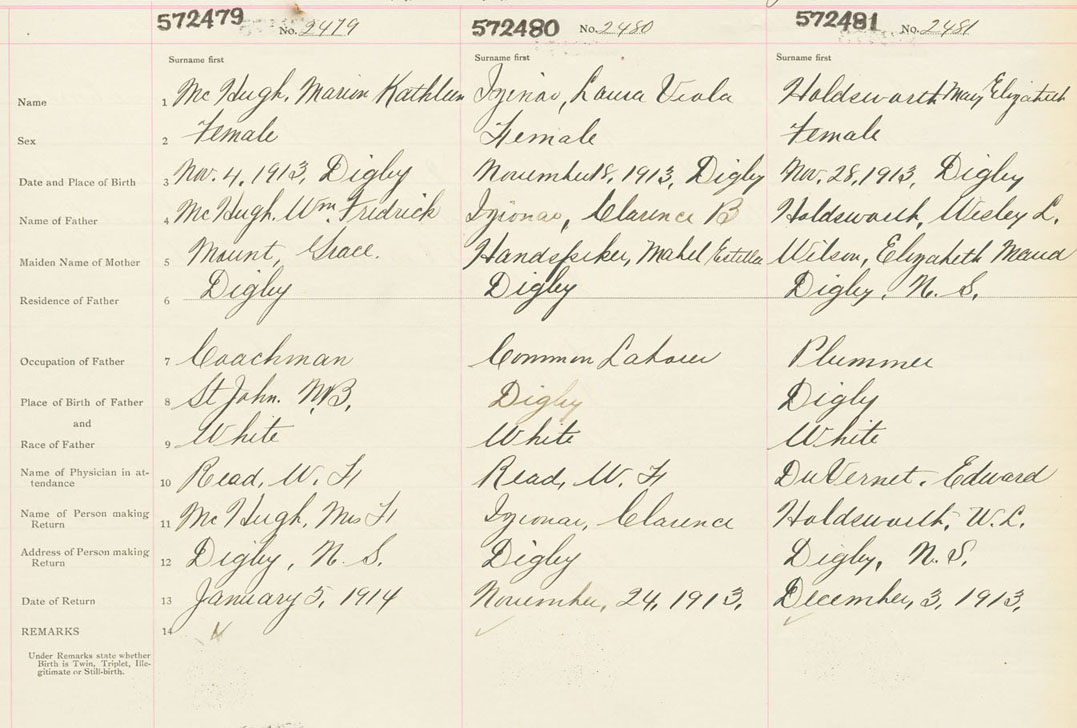 572479 No. 2479 572480 No. 2480 572481 No. 2481
Surname first Surname first Surname first
Name 1 Mc Hugh, Marion Kathleen Laura Viola Holdsworth Mary Elizabeth
Sex 2 Female Female Female
Date and Place of Birth 3 Nov. 4, 1913, Digby November 18, 1913, Digby Nov. 28, 1913, Digby
Name of Father 4 Mc Hugh, Wm. Fredrick Clarence B Holdsworth, Wesley L.
Maiden Name of Mother 5 Mount, Grace. Handspiker, Mabel Estella Wilson, Elizabeth Maud
Residence of Father 6 Digby Digby Digby, N. S.
Occupation of Father 7 Coachman Common Labourer Plummer
Place of Birth of Father 8 St John. N.B. Digby Digby
and
Race of Father 9 White White White
Name of Physician in at-
tendance 10 Read, W. F Read, W. F DuVernet, Edward
Name of Person making
Return 11 Mc Hugh, Mrs F Clarence Holdsworth, W. L.
Address of Person making
Return 12 Digby, N. S. Digby Digby, N. S.
Date of Return 13 January 5, 1914 November, 24, 1913, December, 3, 1913,
REMARKS 14
Under Remarks state whether
Birth is Twin, Triplet, Ille-
gitimate or Still-birth.